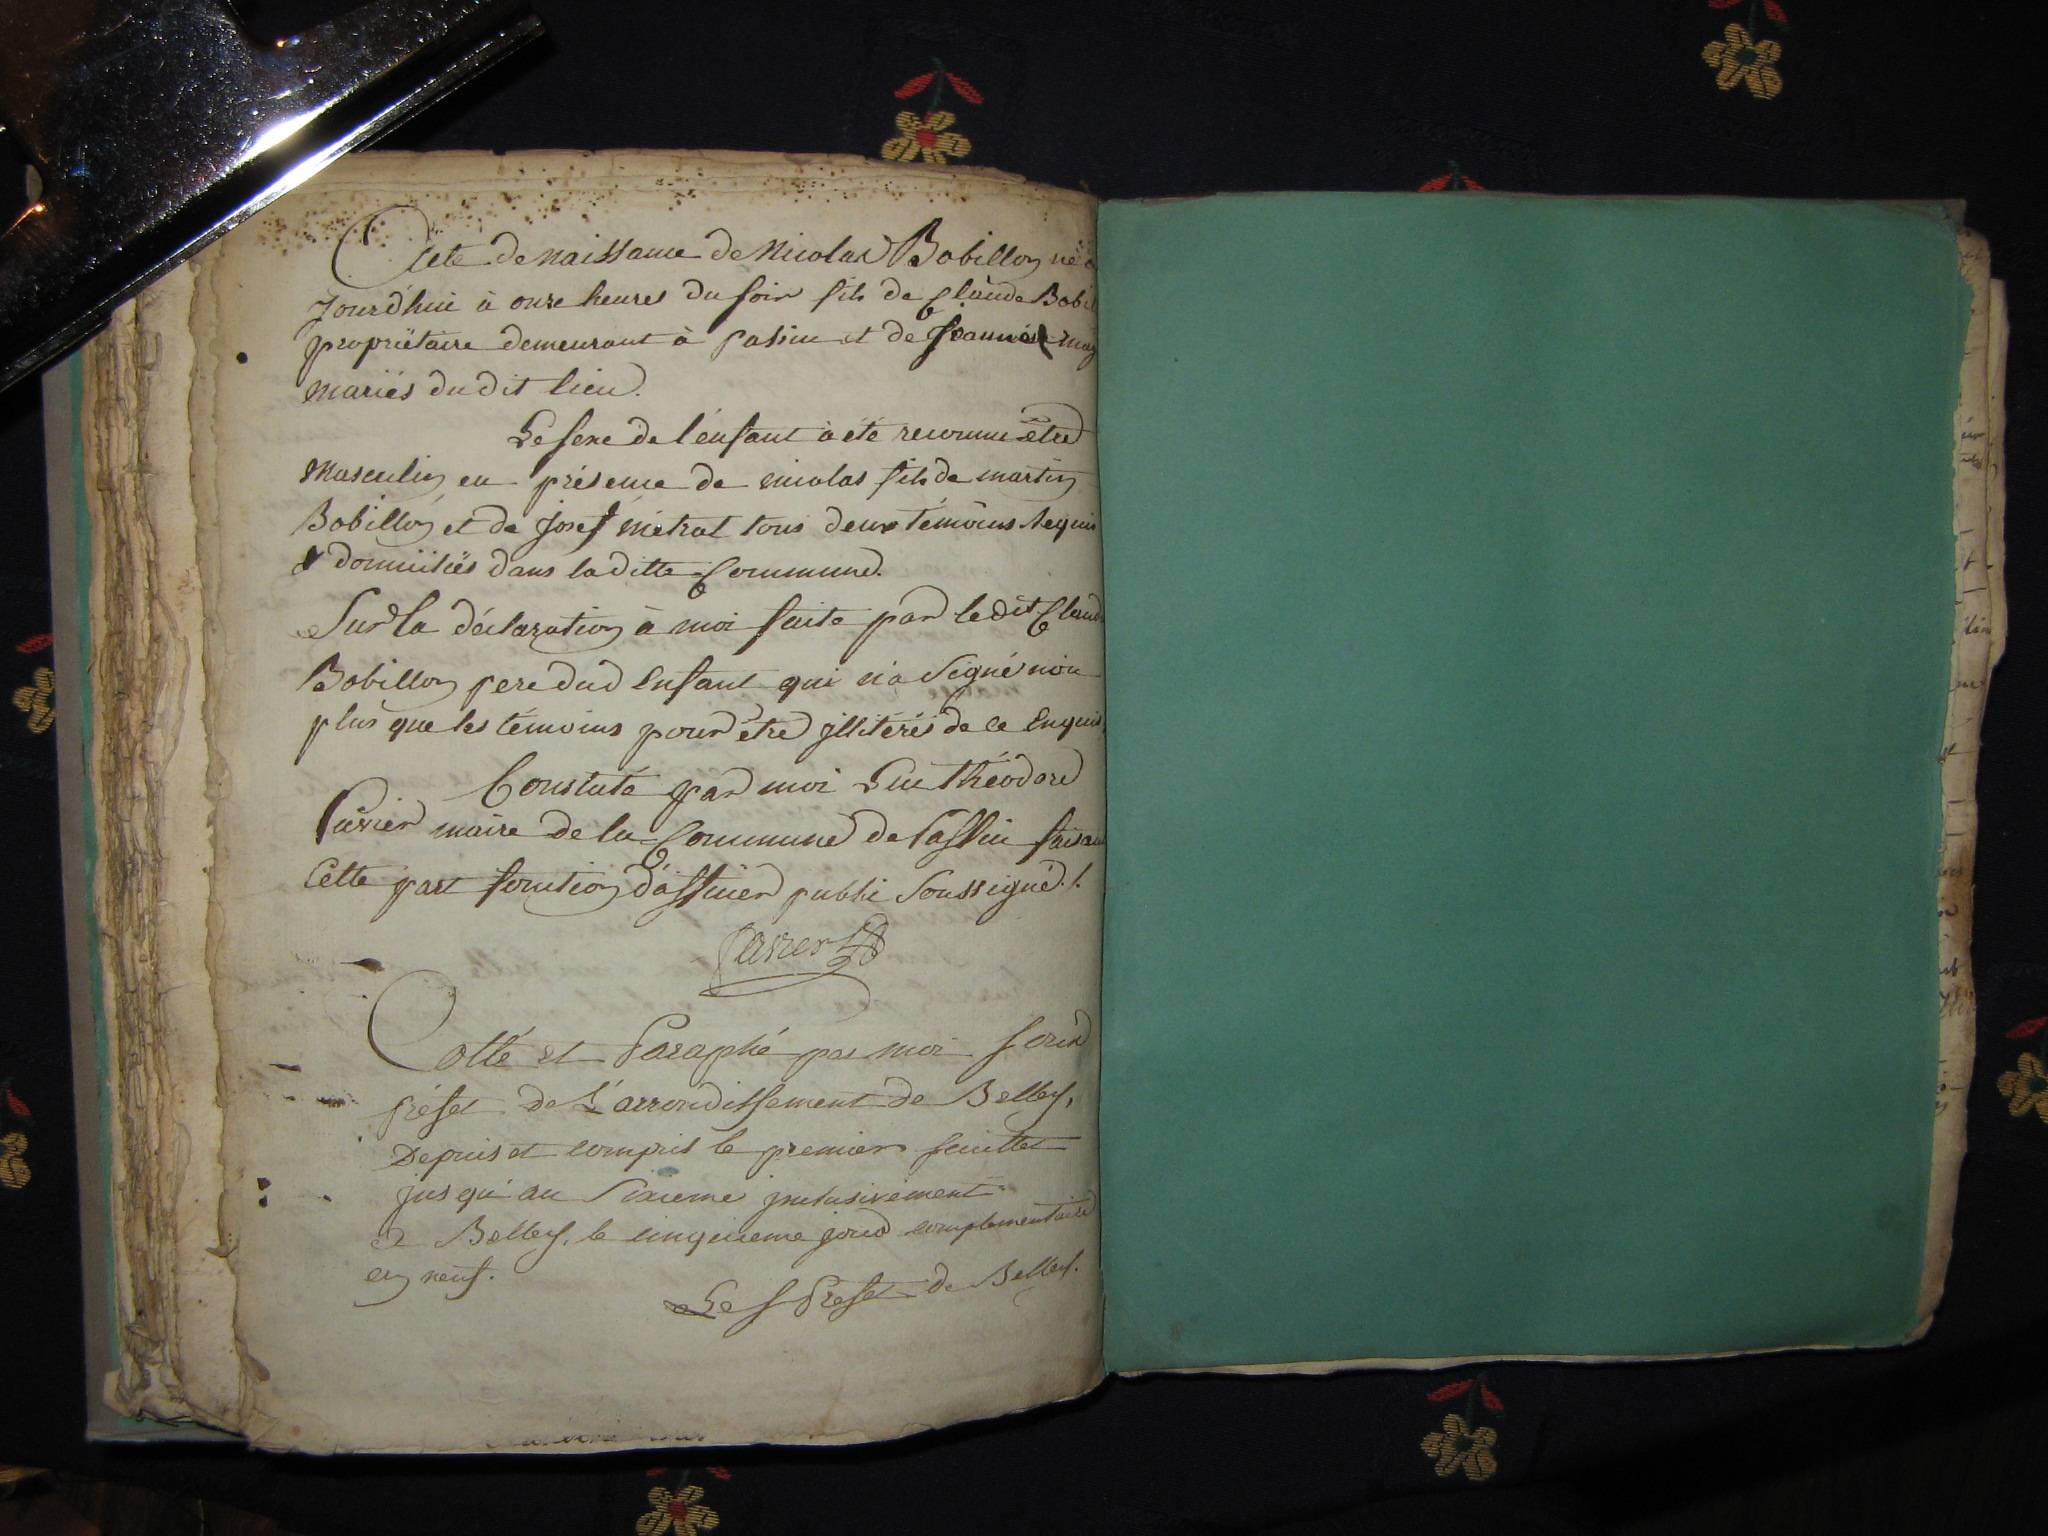 Acte de Naissance de Nicolas Bobillon né
Jourd'hui à onze heures du soir fils de Claude Bobil
propriétaire demeurant à passin et de Jeanne
mariés du dit lieu.
Le sexe de l'énfant à été reconnu être
Masculin en présence de nicolas fils de martin
Bobillon et de Josef métral tous deux témoins Requis
& domiciliés dans la ditte Commune.
Sur la déclaration à moi faite par le dit Claud
Bobillon pere dud Enfant qui n'a Signé non
plus que les témoins pour être jllitérés de ce Enquis
Constaté par moi Luc théodore
maire de la Commune de Passin faisan
Cette part fonction d'officier public Soussigné ./.
Cotté et Paraphé par moi sous
préfet de L'arrondissement de Belley,
Depuis et compris le premier feuillet
jusqu'au Sixieme jnclusivement
a Belley, le cinquieme jour complementaire
an neuf.
Le S Prefet de Belley.